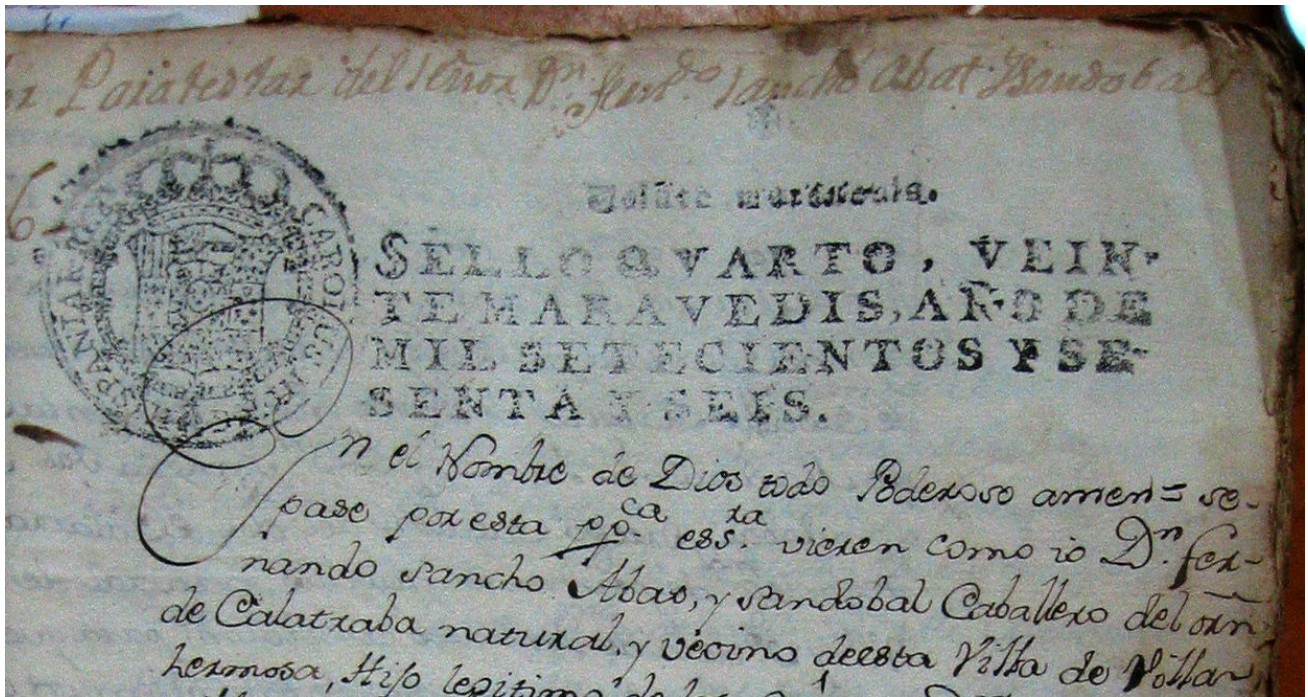 Para testar del Señor Dn. ferndo Sancho Abat Sandobal
6
Veinte maravedis.
CAROLUS III
SPANIAR
SELLO QVARTO, VEIN-
TE MARAVEDIS, AÑO DE
MIL SETECIENTOS Y SE-
SENTA Y SEIS.
En el Nombre de Dios todo Poderoso amen = se-
pase por esta ppca. essra. vieren como io Dn. fer-
nando sancho Abat, y sandobal Caballero del orn
de Calatraba natural, y vecino deesta Villa de Villan
hermosa, Hijo legitimo de los